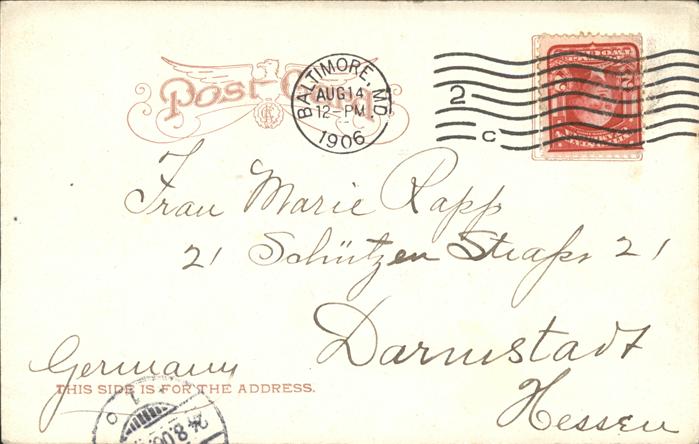 Post Card
BALTIMORE, MD.
AUG 14
12-PM
1906
2
C
Frau Marie Rapp
21 Schützen Straße 21
Darmstadt
Hessen
Germany
THIS SIDE IS FOR THE ADDRESS.
24.8.06